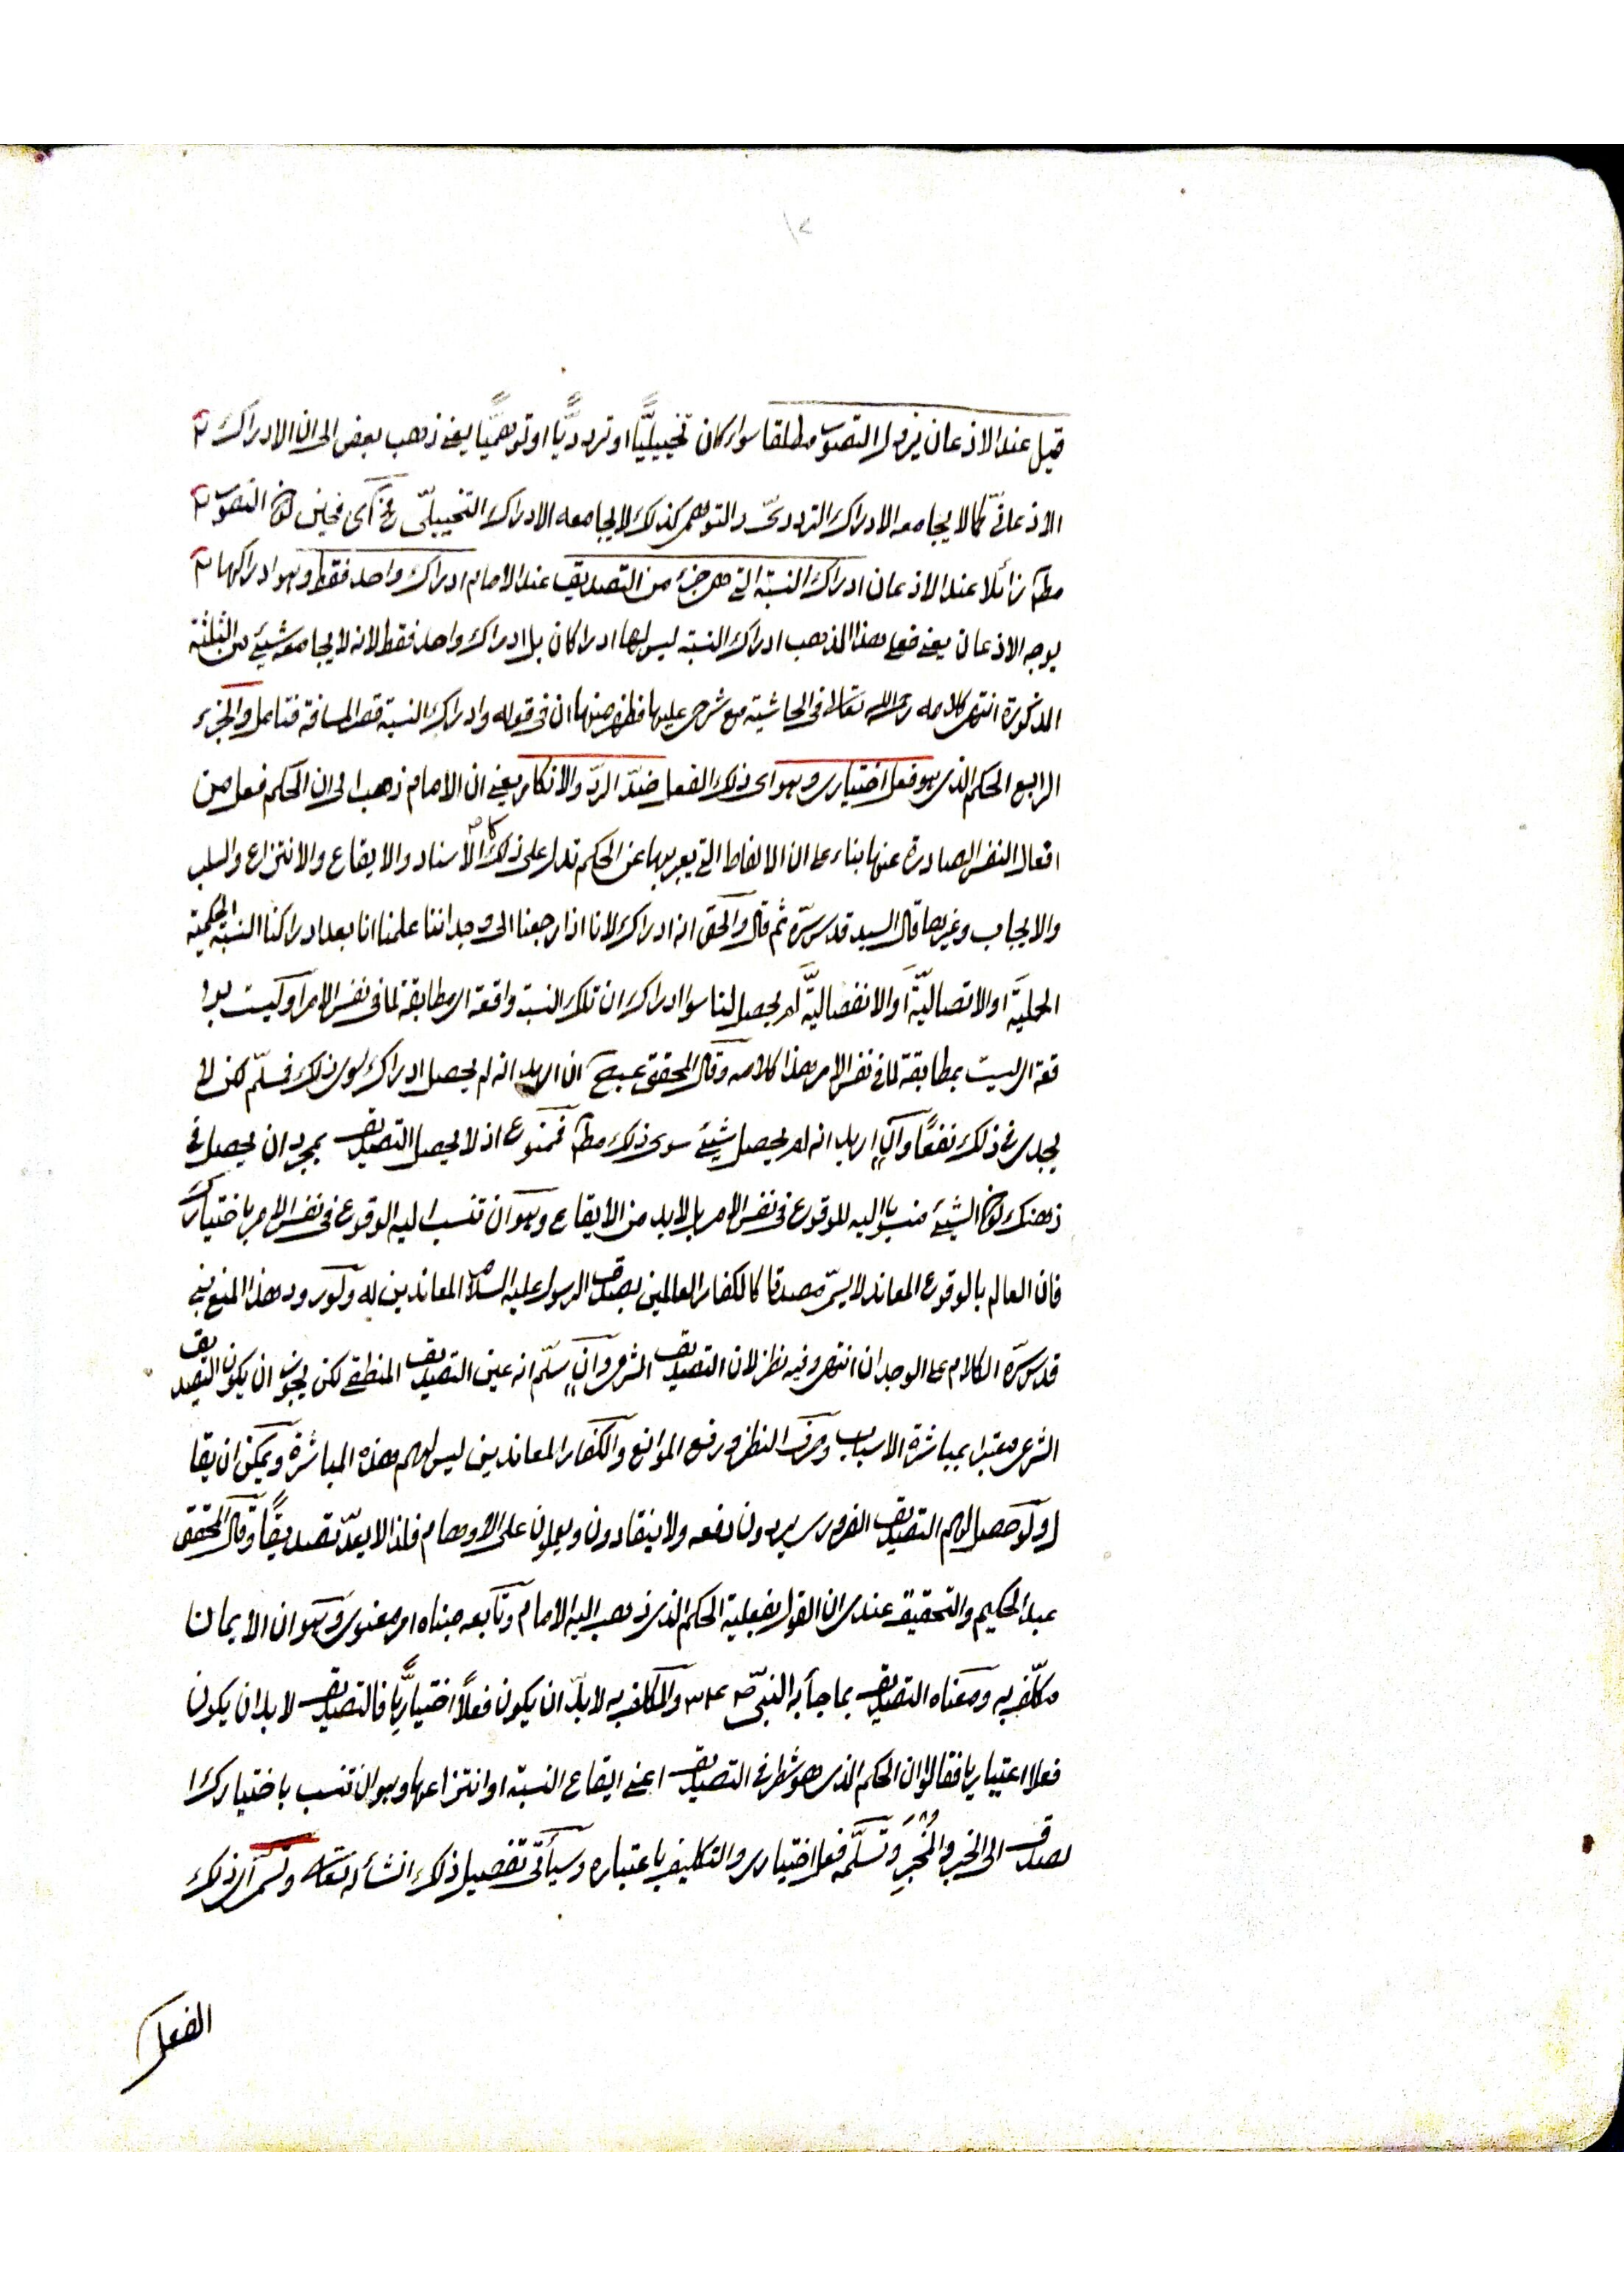 ١٢
قيل عند الاذعان يزول التصور مطلقا سواء كان تخييليًّا او تردديًّا او توهميًّا يعني ذهب بعض الى ان الادراك
الاذعانيّ كما لا يجامعه الادراك الترددىّ والتوهمى كذلك لا يجامعه الادراك التخييلىّ فحينئذ كون التصور
مطلقا زائلا عند الاذعان ادراك النسبة التي هى جزء من التصديق عند الامام ادراك واحد فقط وهو ادراكها
بوجه الاذعان يعني فعلى هذا المذهب ادراك النسبة ليس لها ادراكان بل ادراك واحد فقط لانه لا يجامعه شيئ من الثلثة
المذكورة انتهى كلامه رحمه الله تعالى فى الحاشية مع شرحى عليها فظهر منها ان فى قوله وادراك النسبة قصر المسافة فتامل والجزء
الرابع الحكم الذى هو فعل اختيارى وهو اى ذلك الفعل ضدّ الردّ والانكار يعني ان الامام ذهب الى ان الحكم فعل من
افعال النفس الصادرة عنها بناء على ان الالفاظ التي يعبر بها عن الحكم تدل على ذلك كالاسناد والايقاع والانتزاع والسلب
والايجاب وغيرها قال السيد قدس سرّه ثم قال والحق انه ادراك لانا اذا رجعنا الى وجداننا علمنا انا بعد ادراكنا النسبة الحكمية
الحمليّة او الاتصاليّة او الانفصاليّة لم يحصل لنا سوا ادراك ان تلك النسبة واقعة اى مطابقة لما فى نفس الامر او ليست بوا
قعة اى ليست بمطابقة لما فى نفس الامر هذا كلامه وقال المحقق ان اريد انه لم يحصل ادراك سوى ذلك فسلّم لكن لا
يجدى ذلك نفعًا وان اريد انه لم يحصل شيئ سوى ذلك مطلقا فممنوع اذ لا يحصل التصديق بمجرد ان يحصل فى
ذهنك كون الشيئ منسوبا اليه للوقوع فى نفس الامر بل لابد من الايقاع وهو ان تنسب اليه الوقوع فى نفس الامر باختيارك
فان العالم بالوقوع المعاند لا يسمّى مصدقا كالكفار العالمين بصدق الرسول عليه السلام المعاندين له ولورود هذا المنع بني
قدس سرّه الكلام على الوجدان انتهى وفيه نظر لان التصديق الشرعى وان سلّم انه عين التصديق المنطقي لكن يجوز ان يكون التصديق
الشرعى معتبرا بمباشرة الاسباب وصرف النظر ورفع الموانع والكفار المعاندين ليس لهم هذه المباشرة ويمكن ان يقا
ل ولو حصل لهم التصديق الضرورى يريدون دفعه ولا ينقادون ويعملون على الاوهام فلذا لا يعدّ تصديقًا وقال المحقق
عبد الحكيم والتحقيق عندى ان القول بفعلية الحكم الذى ذهب اليه الامام وتابعه مبناه امر معنوى وهو ان الايمان
مكلّف به ومعناه التصديق بما جاء به النبىّ والمكلف به لابدّ ان يكون فعلاً اختياريًّا فالتصديق لابد ان يكون
فعلا اختياريا فقالوا ان الحكم الذى هو شطر فى التصديق اعني ايقاع النسبة او انتزاعها وهو ان تنسب باختيارك ا
لصدق الى الخبر والمُخْبِر وتسلّمه فعل اختيارى والتكليف باعتباره وسيأتى تفصيل ذلك انشاء الله تعالى ونسمى ذلك
الفعل